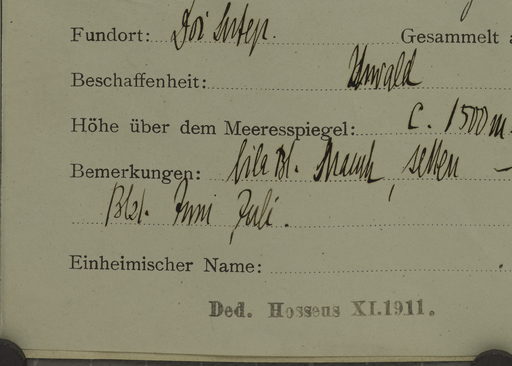 Fundort: Doi Sutep. Gesammelt a
Beschaffenheit: Urwald
Höhe über dem Meeresspiegel: c. 1500 m.
Bemerkungen: lila Bl. Strauch, selten —
Blzt. Juni, Juli.
Einheimischer Name:
Ded. Hosseus XI.1911.